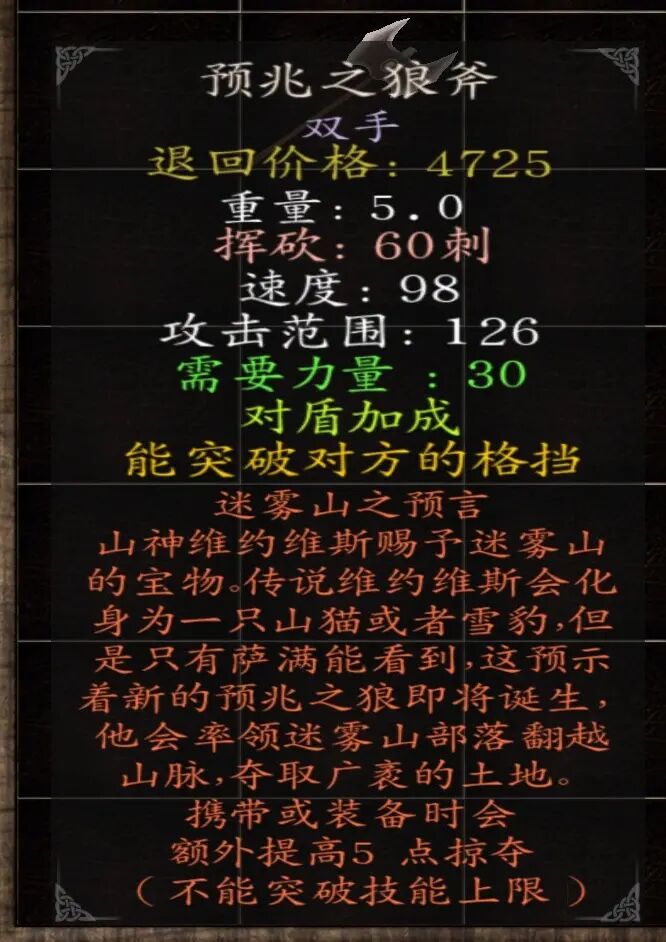 预兆之狼斧
双手
退回价格: 4725
重量: 5.0
挥砍: 60刺
速度: 98
攻击范围: 126
需要力量 : 30
对盾加成
能突破对方的格挡
迷雾山之预言
山神维约维斯赐予迷雾山
的宝物。传说维约维斯会化
身为一只山猫或者雪豹,但
是只有萨满能看到,这预示
着新的预兆之狼即将诞生,
他会率领迷雾山部落翻越
山脉,夺取广袤的土地。
携带或装备时会
额外提高5 点掠夺
(不能突破技能上限)